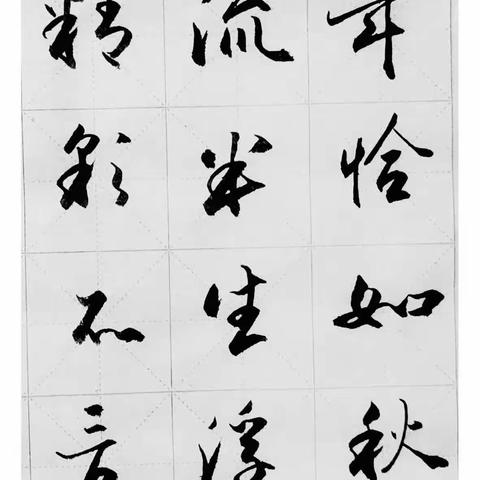 年恰如秋
流半生浮
精彩不言